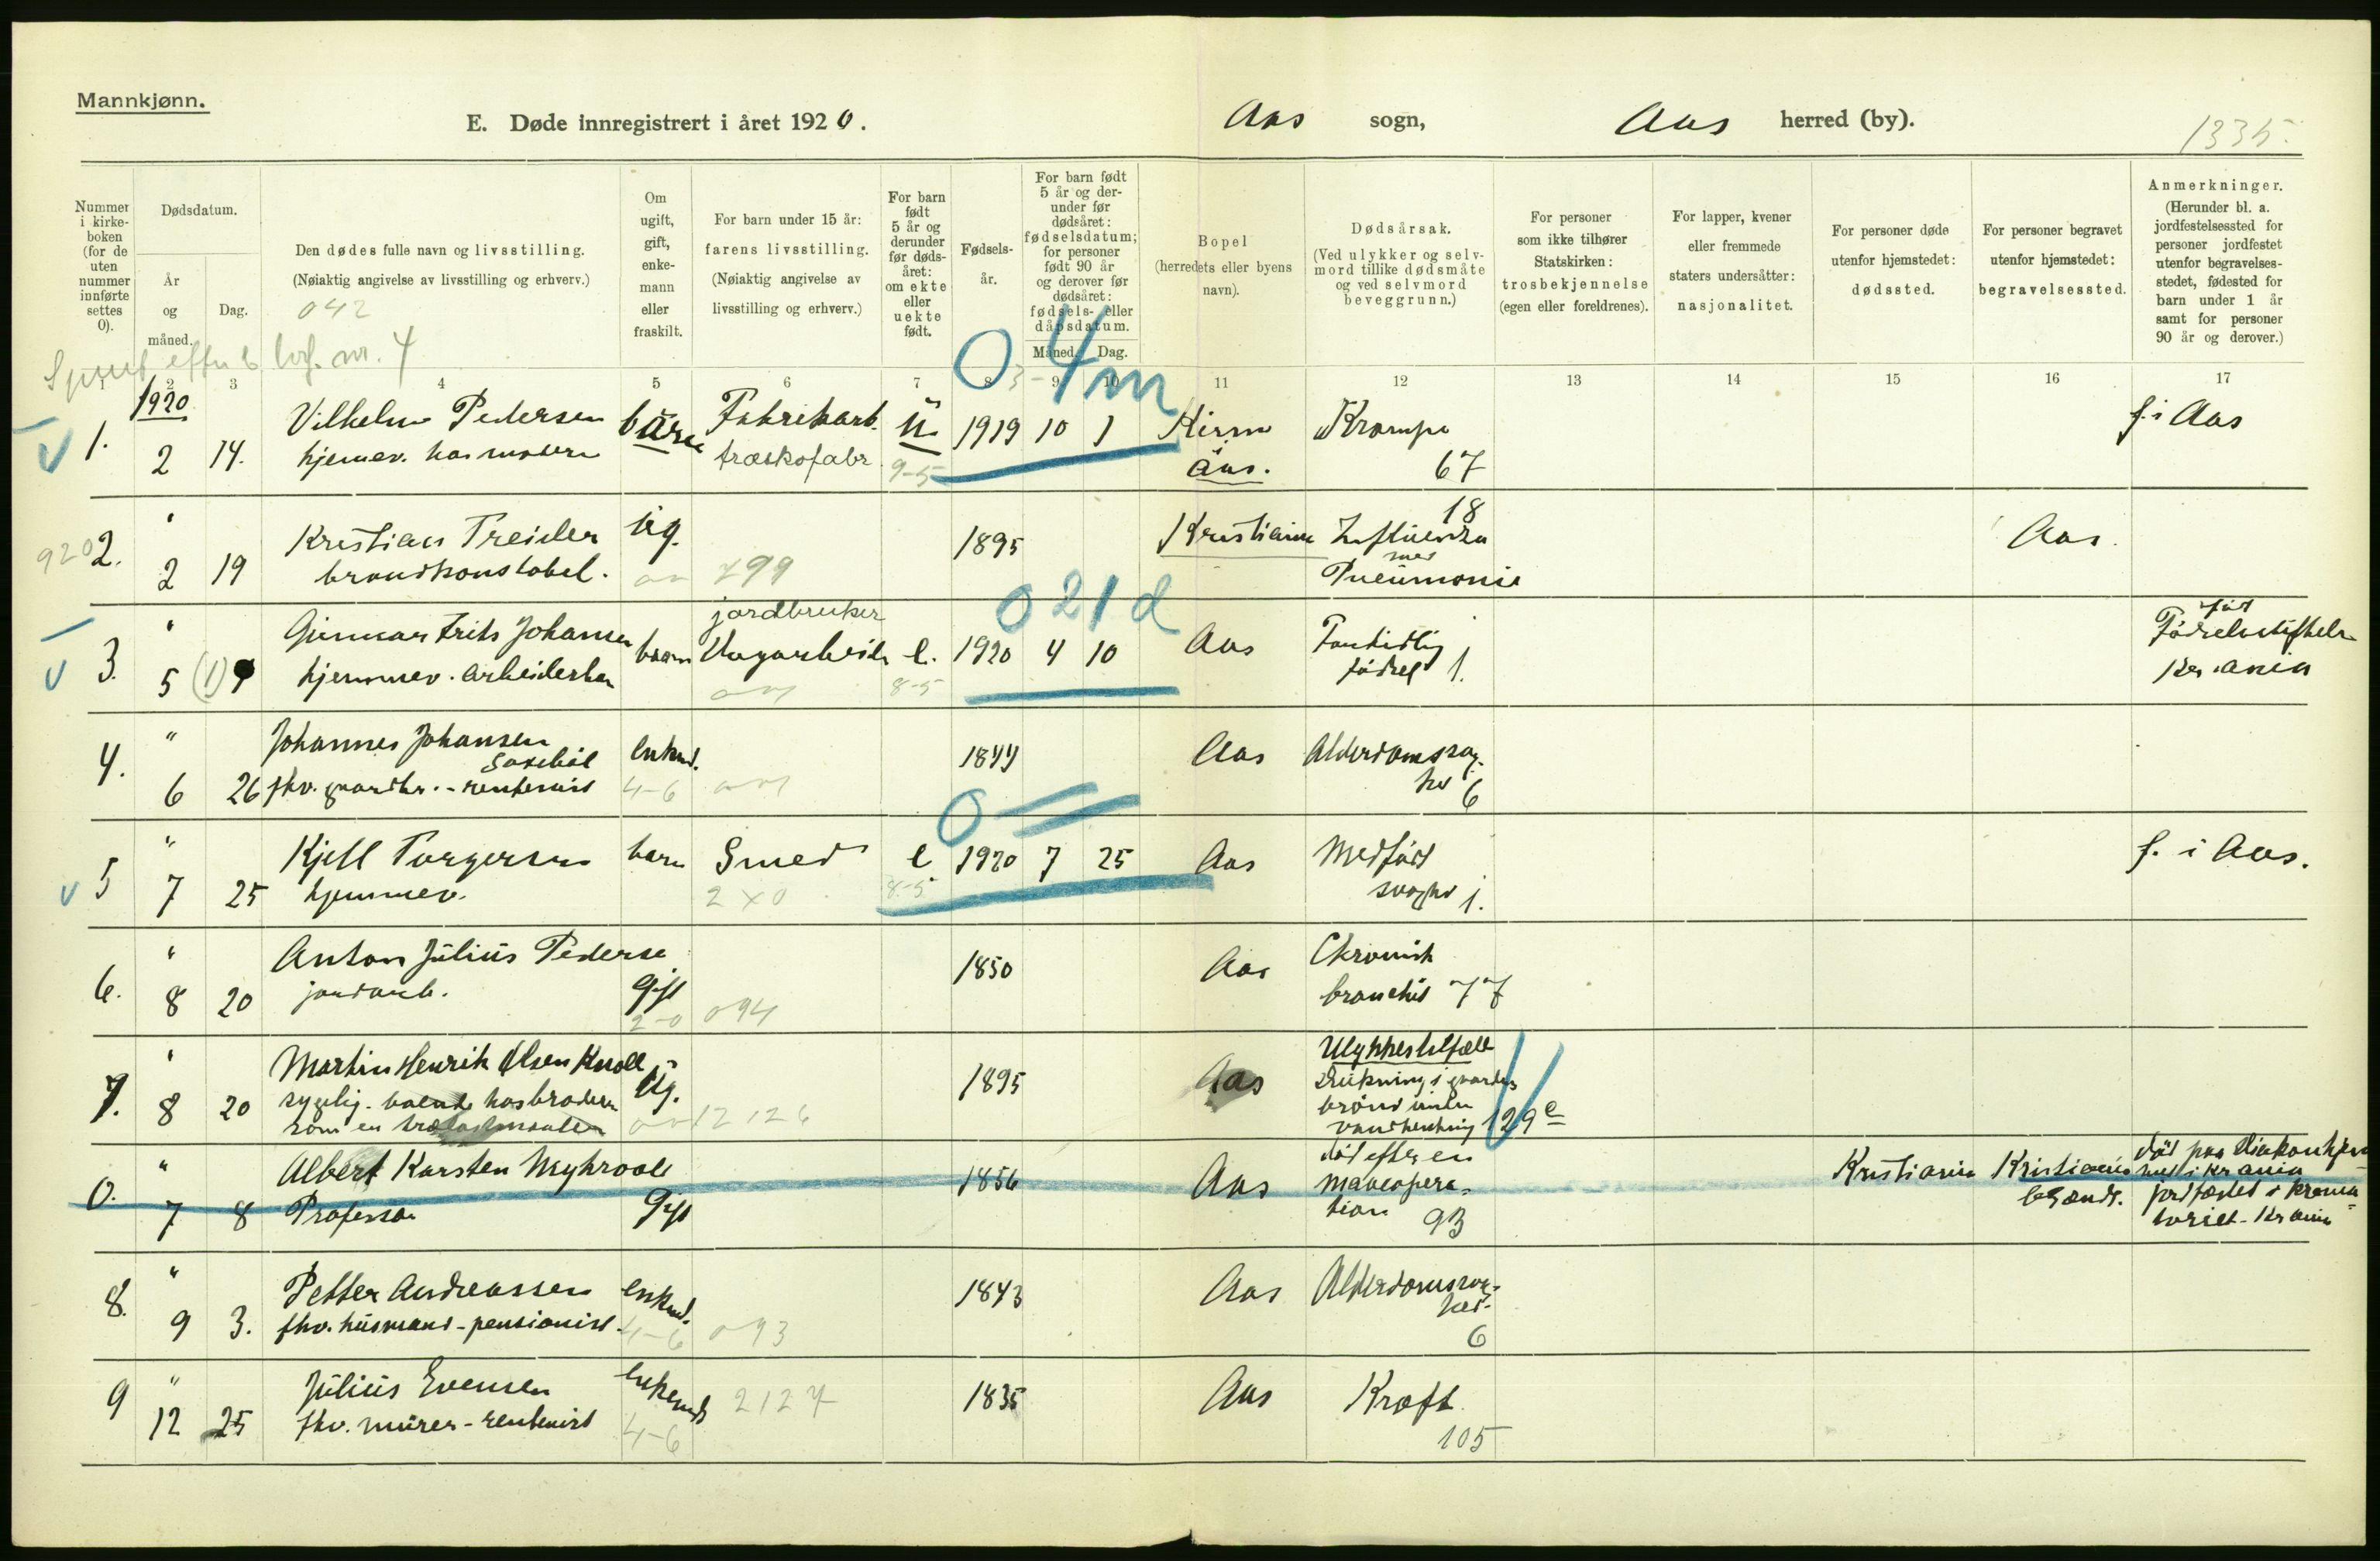 Mannkjønn.
E. Døde innregistrert i året 1920.
Aas sogn,
Aas herred (by).
1335.
Nummer i kirke-boken (for de uten nummer innførte settes 0).
Dødsdatum.
År og måned.
Dag.
Den dødes fulle navn og livsstilling.
(Nøiaktig angivelse av livsstilling og erhverv.)
042
Om ugift, gift, enke-mann eller fraskilt.
For barn under 15 år:
farens livsstilling.
(Nøiaktig angivelse av livsstilling og erhverv.)
For barn født 5 år og derunder før døds-året: om ekte eller uekte født.
Fødsels-år.
For barn født 5 år og der-under før dødsåret: fødselsdatum; for personer født 90 år og derover før dødsåret: fødsels- eller dåpsdatum.
Måned. Dag.
Bopel
(herredets eller byens navn).
Dødsårsak.
(Ved ulykker og selv-mord tillike dødsmåte og ved selvmord beveggrunn.)
For personer som ikke tilhører Statskirken:
trosbekjennelse
(egen eller foreldrenes).
For lapper, kvener eller fremmede staters undersåtter:
nasjonalitet.
For personer døde utenfor hjemstedet:
dødssted.
For personer begravet utenfor hjemstedet:
begravelsessted.
Anmerkninger.
(Herunder bl. a. jordfestelsessted for personer jordfestet utenfor begravelses-stedet, fødested for barn under 1 år samt for personer 90 år og derover.)
nr. 4
1 2 3 4 5 6 7 8 9 10 11 12 13 14 15 16 17
0 4 m
1920
1. 2 14. Vilhelm Pedersen
hjemev. hos moderen
barn
Fabrikarb.
træskofabr.
u
9-5
1919 10 1
Aas.
Krampe
67
f. i Aas
920
2. " 2 19 Kristian Treider
brandkonstabel.
ug.
799
1895
Kristiania
18
Influenza
med
Pneumonie
Aas.
0 21 d
3. " 5 (1) 9 Gunnar Frits Johansen
hjemmev. arbeiderbarn
barn
jordbruker
e.
8-5
1920 4 10
Aas
Fortidlig
födsel 1.
Födselsstiftelse
Kr.ania
4. " 6 26 Johannes Johansen
fhv. gaardbr. - rentenist
enkmd.
4-6
1844
Aas
Alderdomssvag-
hed 6
0
5 " 7 25 Kjell Torgersen
hjemmev.
barn
Smed
2 x 0
e
8-5
1920 7 25
Aas
Medfödt
svaghed 1.
f. i Aas.
6. " 8 20 Anton Julius Pederse
jordarb.
gift
2-0
094
1850
Aas
Chronisk
bronchit 77
7. " 8 20 Martin Henrik Olsen Knoll
sygelig. boende hos broderen
som en
ug.
12 126
1895
Aas
Ulykkestilfælde
Drukning i gaardens
brönd under
vandhentning 129 e
0. " 7 8 Albert Karsten Myhrvold
Professor
Gift
1856
Aas
död efter en
maveopera-
tion 93
Kristiania
Kristiania
brændt.
död paa Diakonhjem
met i Kr.ania
jordfæstet i krema
toriet - Kr.ania
8. " 9 3. Petter Andreassen
fhv. husmand - pensionist.
enkmd.
4-6
093
1843
Aas
Alderdomssvag-
hed.
6
9 " 12 25 Julius Evensen
fhv. murer - rentenist
enkemd
4-6
2127
1835
Aas
Kræft.
105